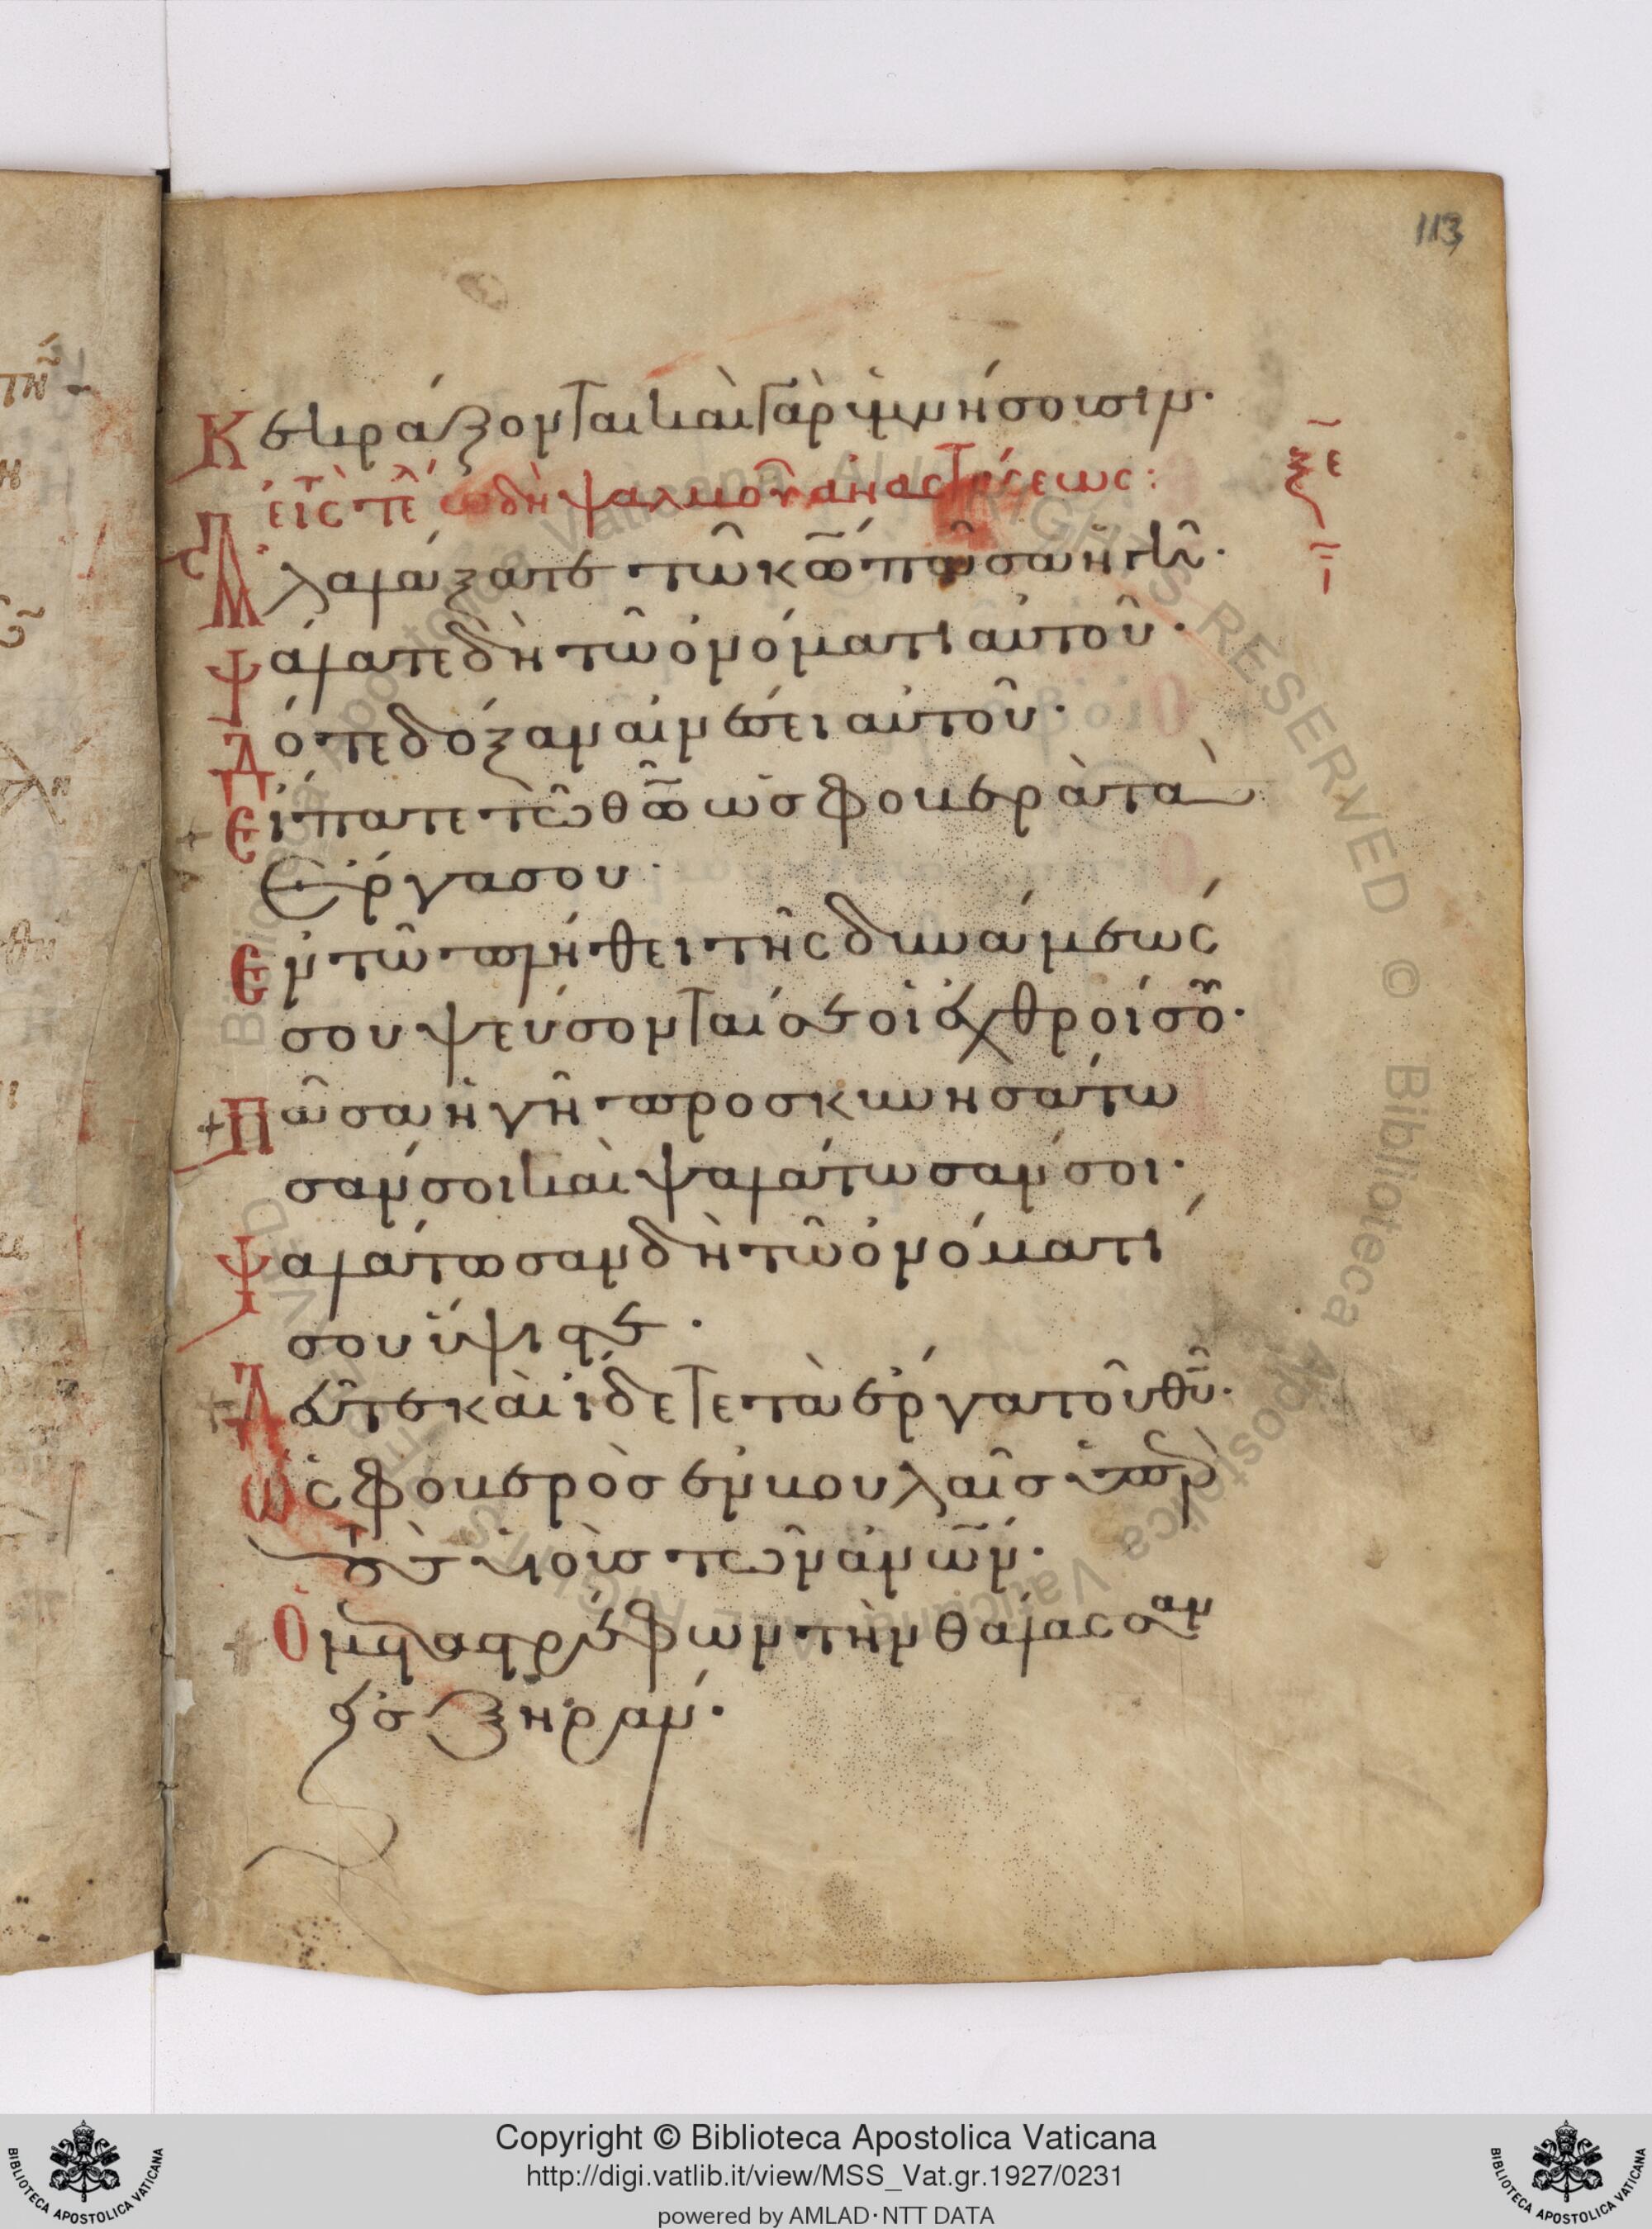 113
Κεκράξονται καὶ γὰρ ὑμνήσουσιν·
εἰς τὸ τέλ ωδὴ ψαλμοῦ ἀναστάσεως:
ξε
Ἀλαλάξατε τῶ κῶ πᾶσα ἡ γῆ·
ψάλατε δὴ τῶ ὀνόματι αὐτοῦ·
Δότε δόξαν αἰνέσει αὐτοῦ·
Εἴπατε τῶ θῶ ὡς φοβερὰ τὰ
ἔργα σου·
Ἐν τῶ πλήθει τῆς δυνάμεώς
σου ψεύσονταί σε οἱ ἐχθροί σου·
Πᾶσα ἡ γῆ προσκυνησάτω
σάν σοι καὶ ψαλάτωσάν σοι·
Ψαλάτωσαν δὴ τῶ ὀνόματί
σου ὕψιστε·
Δεῦτε καὶ ἴδετε τὰ ἔργα τοῦ θυ·
ὡς φοβερὸς ἐν βουλαῖς ὑπὲρ
τοὺς υἱοὺς τῶν ἀνων·
Ὁ μεταστρέφων τὴν θάλασσαν
εἰς ξηράν·
Copyright © Biblioteca Apostolica Vaticana
http://digi.vatlib.it/view/MSS_Vat.gr.1927/0231
powered by AMLAD·NTT DATA